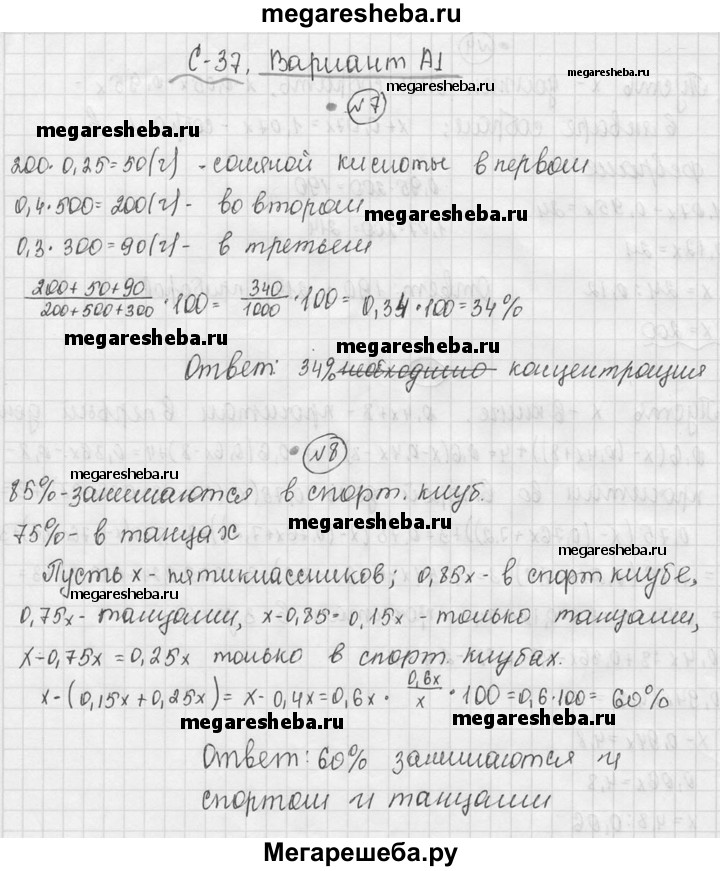 megaresheba.ru
С-37, Вариант А1
megaresheba.ru
№7
megaresheba.ru
200·0,25=50(г) - соляной кислоты в первом
0,4·500=200(г)- во втором
megaresheba.ru
0,3·300=90(г)- в третьем
(200+50+90)/(200+500+300)·100= 340/1000·100= 0,34·100=34%
megaresheba.ru
megaresheba.ru
Ответ: 34% необходимо концентрация
№8
megaresheba.ru
85%-занимаются в спорт. клуб.
megaresheba.ru
75%- в танцах
megaresheba.ru
Пусть х- пятиклассников; 0,85х- в спорт клубе,
megaresheba.ru
0,75х- танцами, х-0,85· 0,15х - только танцами,
х-0,75х=0,25х только в спорт. клубах.
х-(0,15х+0,25х)= х-0,4х=0,6х· 0,6х/х ·100=0,6·100= 60%
megaresheba.ru
megaresheba.ru
Ответ: 60% занимаются и
спортом и танцами
megaresheba.ru
Мегарешеба.ру